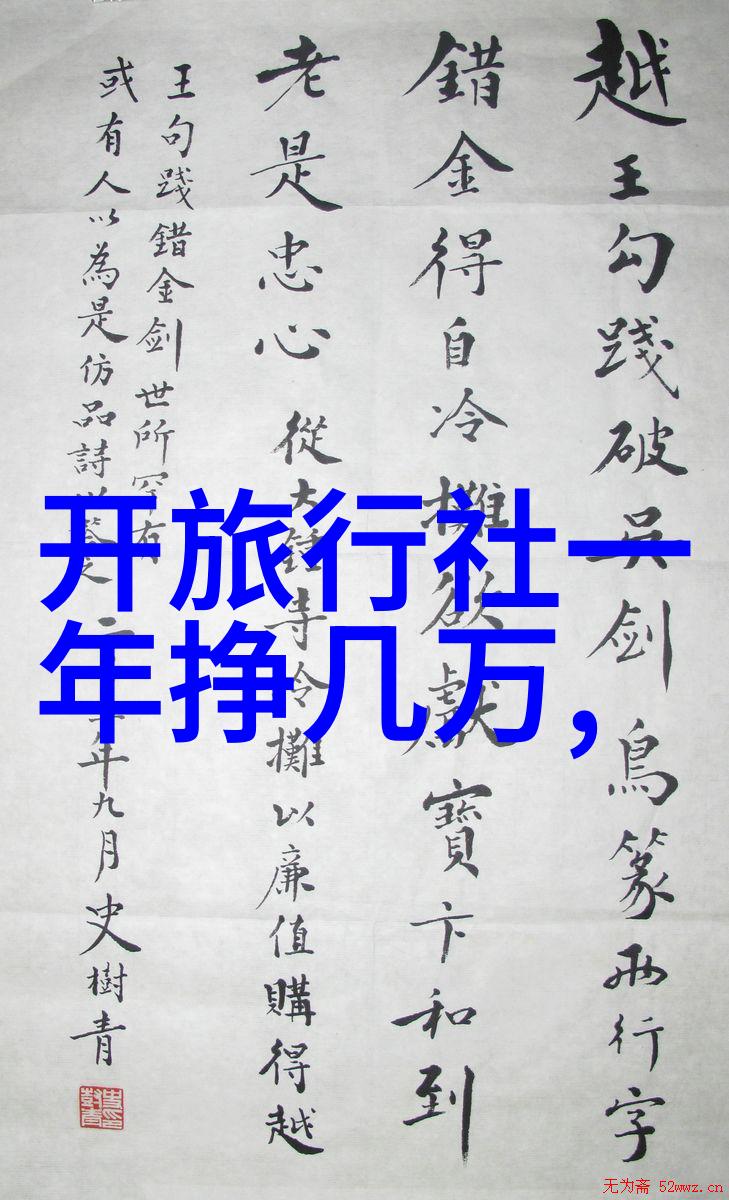 开旅行社一
年挣几万,
越王勾踐破吳剑鳥篆兩行字
錯金得自冷攤欲獻寶卞和到
老是忠心 從大鍾寺冷攤以廉值購得越
王句踐錯金剑世所罕有
或有人以為是仿品詩以答之二年九月史樹青
无为斋 52wwz.cn